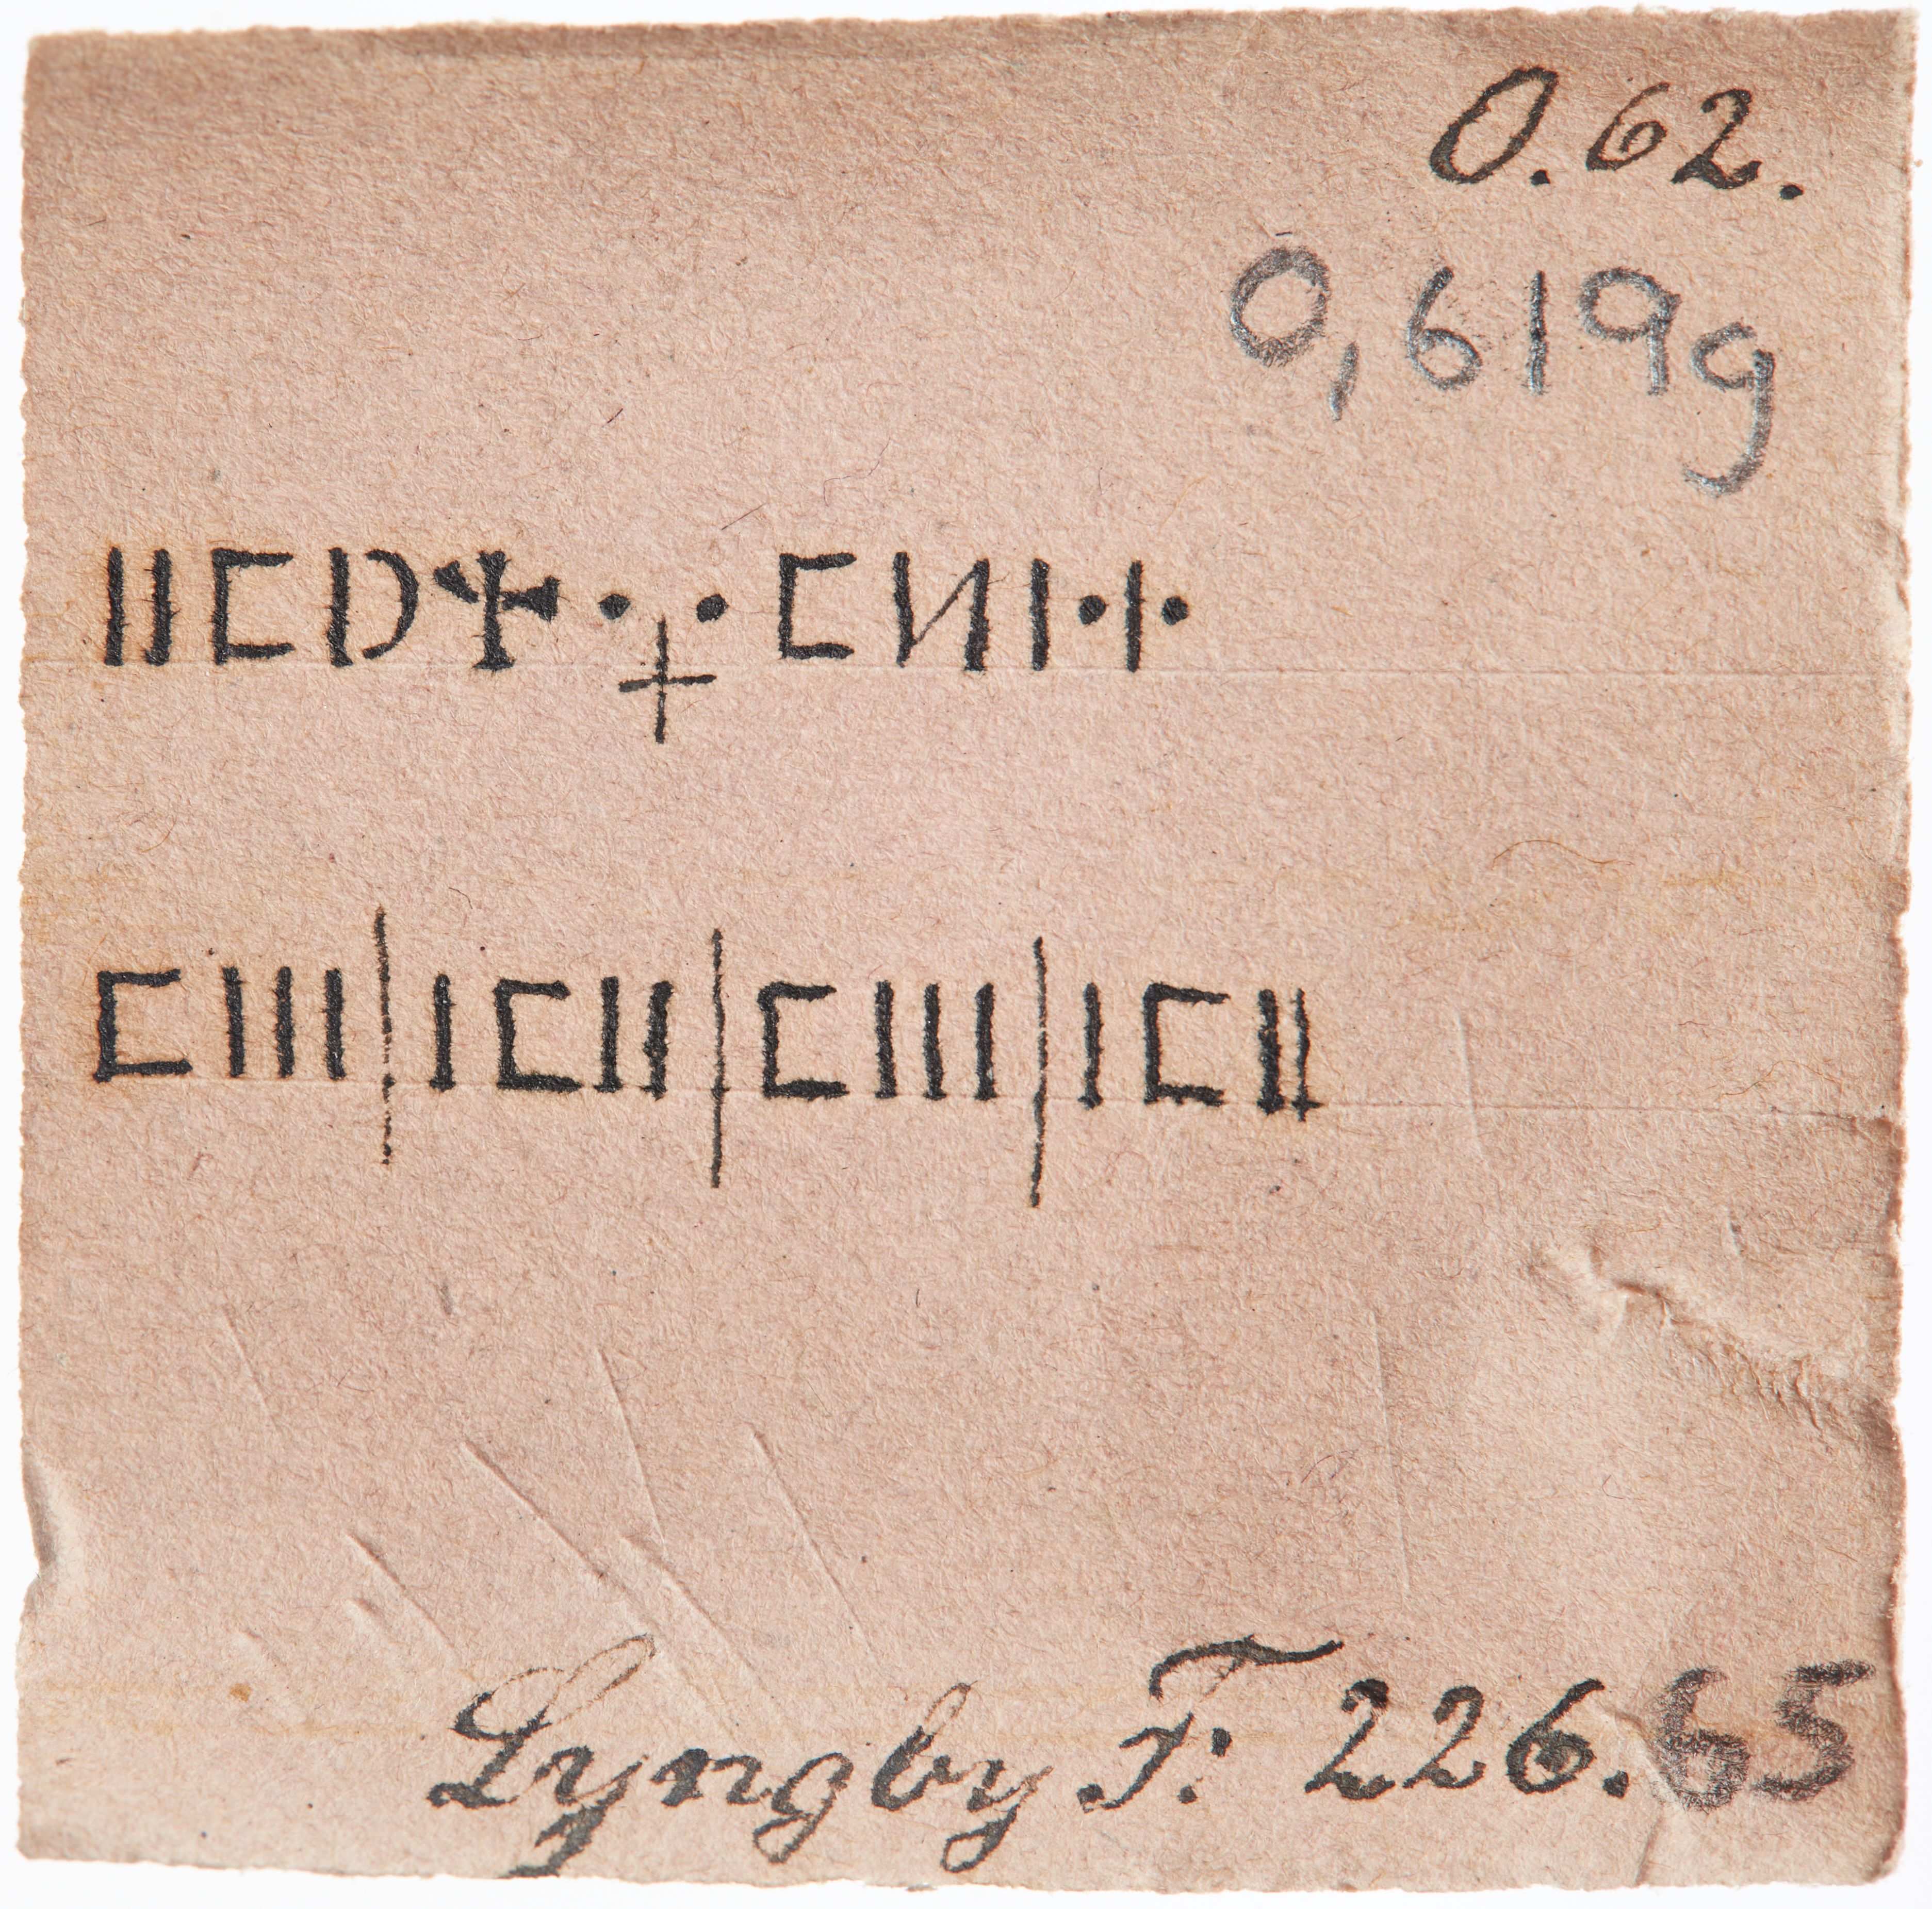 0.62.
0,619g
IICD✠·+·CИI·I·
CIII|ICII|CIII|ICII
Lyngby F: 226.65